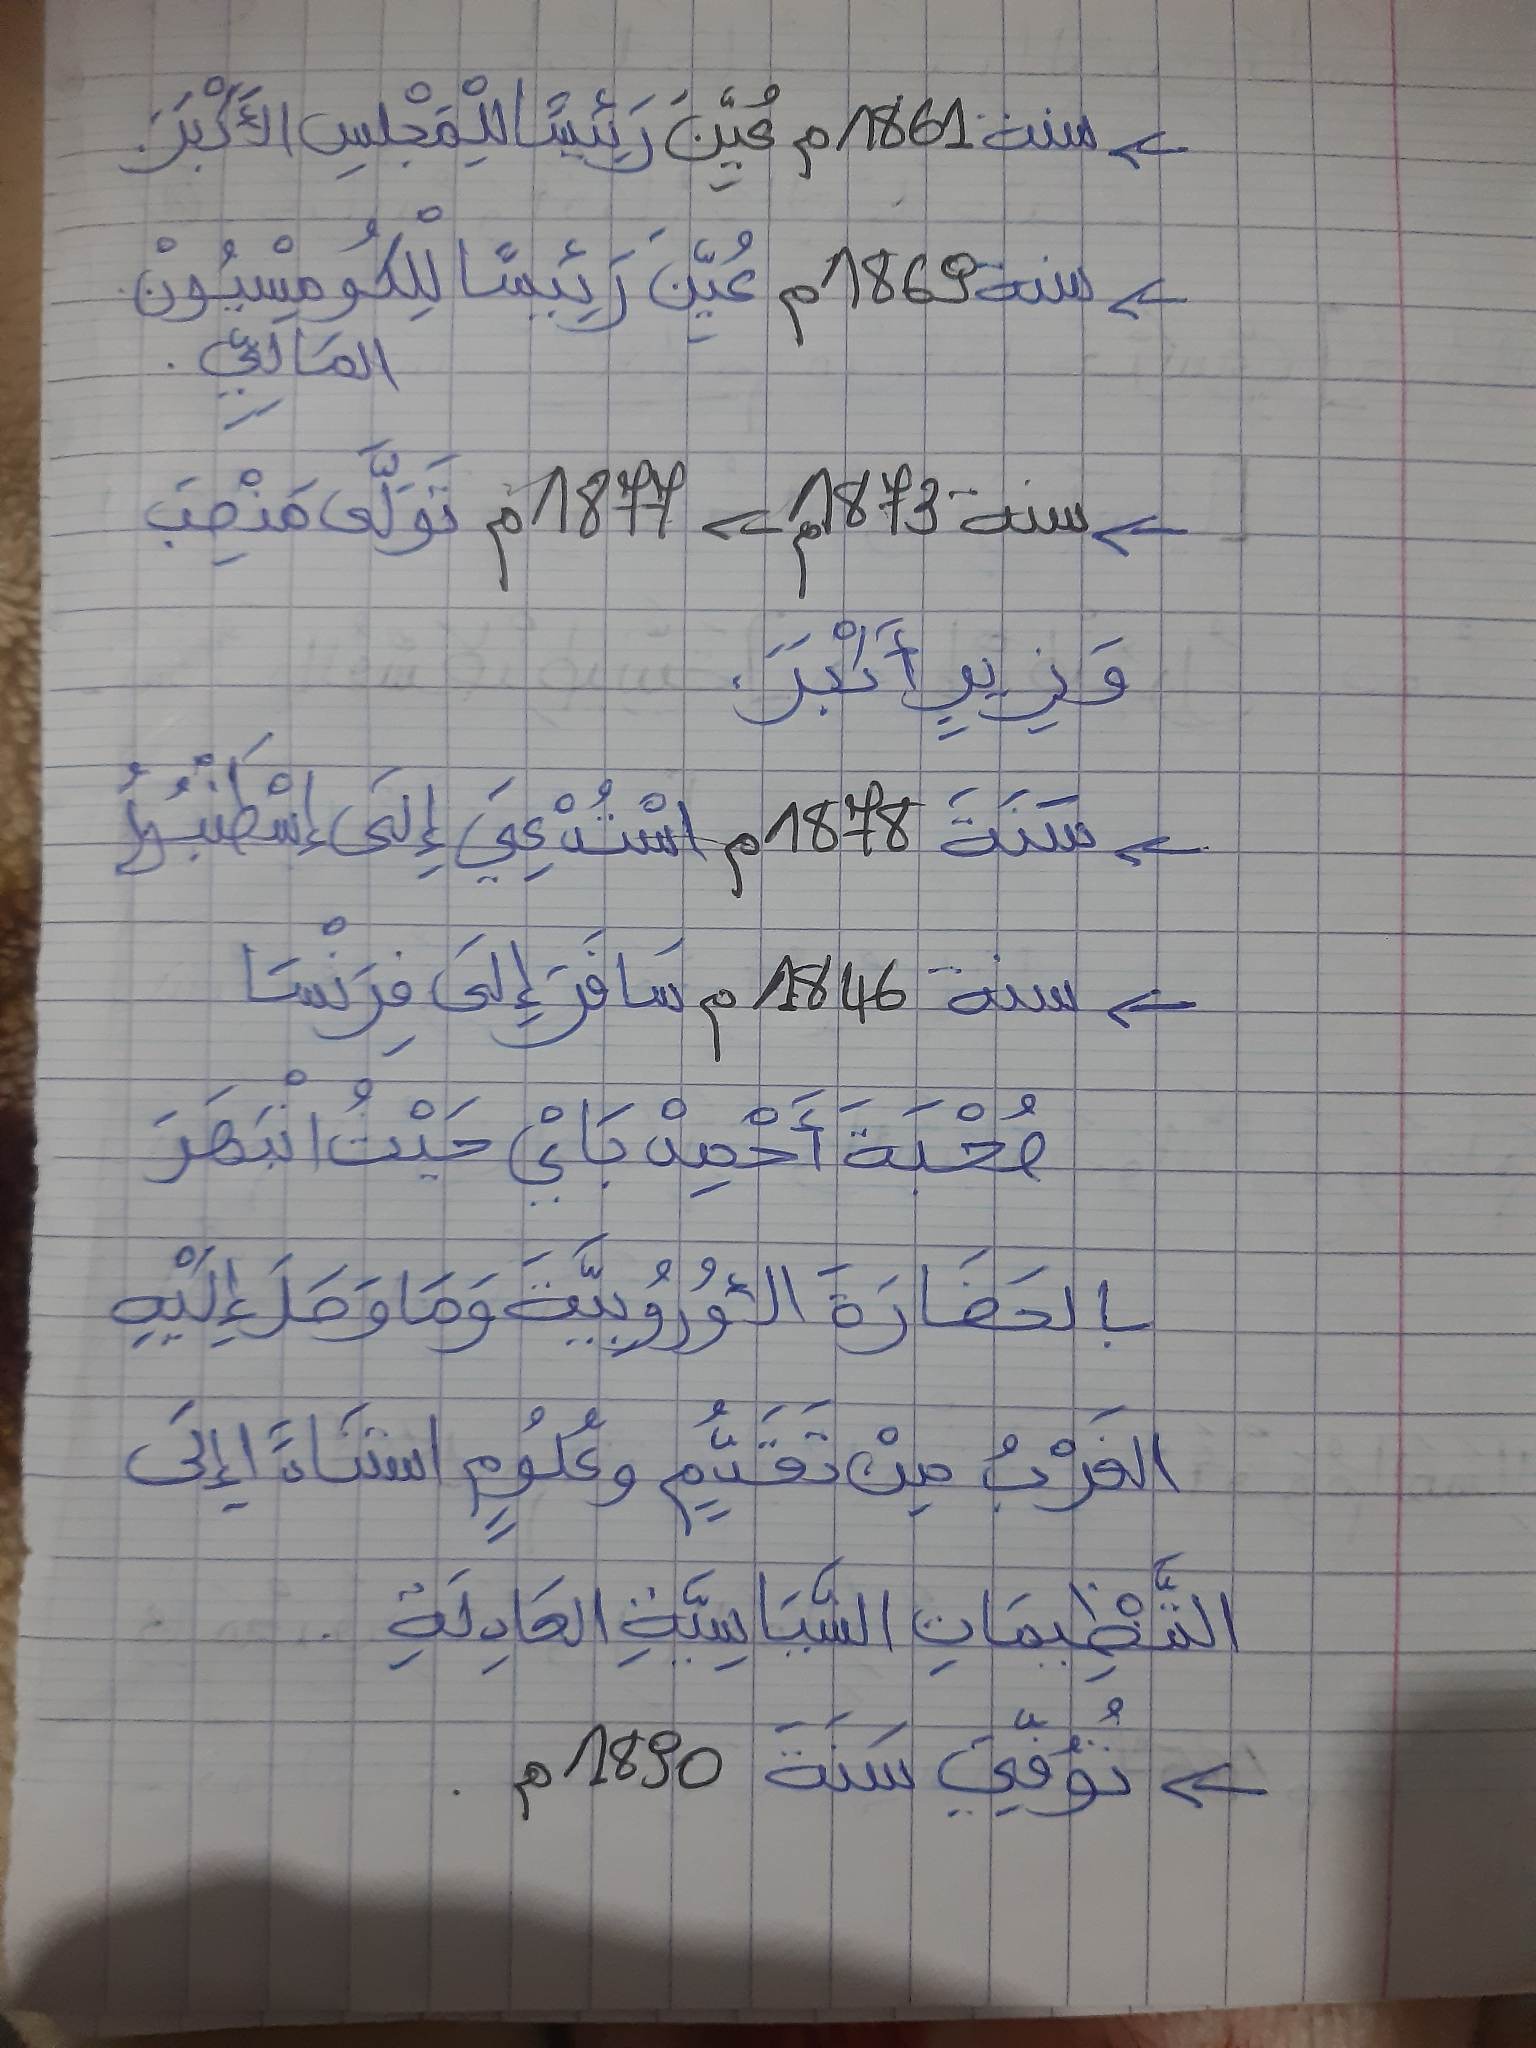 ← سنة 1861م عُيِّنَ رَئِيسًا لِلْمَجْلِسِ الأَكْبَرَ.
← سنة 1869م عُيِّنَ رَئِيسًا لْلِكُومِسْيُونْ
المَالِيِّ .
← سنة 1873م ← 1877م تَوَلَّى مَنْصِبَ
وَزِيرٍ أَكْبَرَ.
← سَنَةَ 1878م اسْتُدْعِيَ إِلَى إِسْطَنْبُولُ
← سنة 1846م سَافَرَ إِلَى فِرَنْسَا
صُحْبَةَ أَحْمِدْ بَايْ حَيْثُ انْبَهَرَ
بالحَضَارَةَ الأُورُوبِيَّةَ وَمَا وَصَلَ إِلَيْهِ
الغَرْبُ مِنْ تَقَدُّمٍ وعُلُومٍ استنَادًا إِلَى
التَّنْظِيمَاتِ السَّيَاسِيَّةِ العَادِلَةِ .
← تُوُفِّيَ سَنَةَ 1890م .